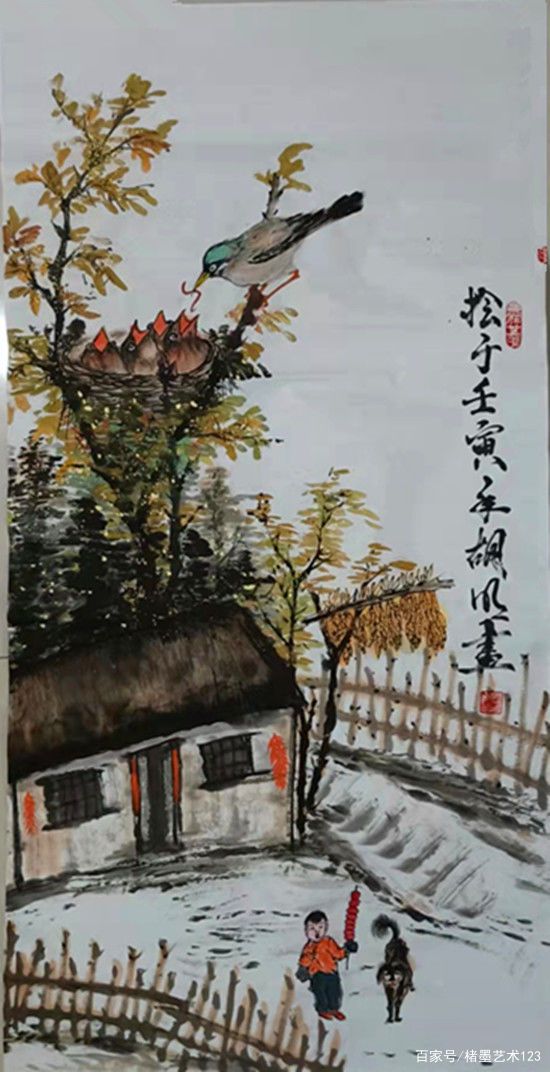 绘于壬寅年胡畫
百家号/楮墨艺术123